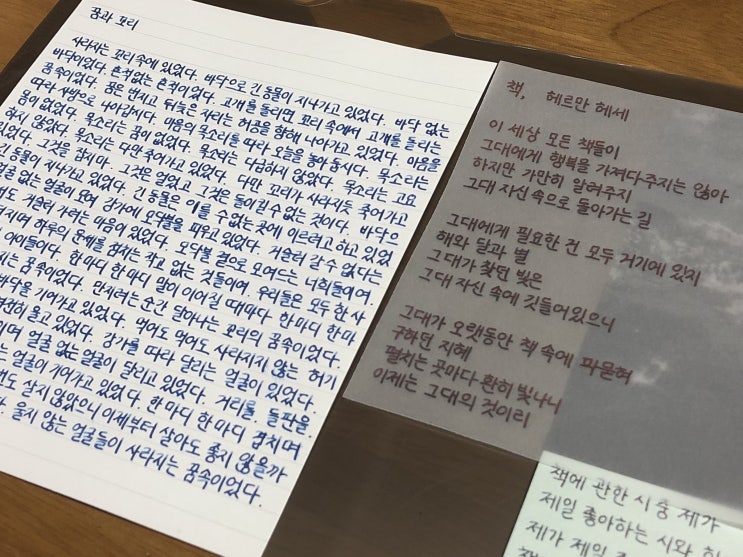 꿈과 꼬리
사라지는 꼬리 속에 있었다. 바닥으로 긴 동물이 지나가고 있었다. 바닥 없는
바닥이었다. 흔적 없는 흔적이었다. 고개를 돌리면 꼬리 속에서 고개를 돌리는
꿈속이었다. 꿈은 번지고 뒤늦은 자리는 허공을 향해 나아가고 있었다. 마음을
따라 사방으로 나아갑시다. 마음의 목소리를 따라 오늘을 놓아둡시다. 목소리는
몸이 없었다. 목소리는 꿈이 없었다. 목소리는 다급하지 않았다. 목소리는 고요
하지 않았다. 목소리는 다만 죽어가고 있었다. 다만 꼬리가 사라지듯 죽어가고
있었다. 그것을 그것은 멀었고 그것은 돌이킬 수 없는 것이다. 바닥으
긴 동물이 지나가고 있었다. 긴 동물은 이를 수 없는 곳에 이르려고 하고 있었
얼굴 없는 얼굴이 모여 강가에 모닥불을 피우고 있었다. 거슬러 갈 수 없다는
도 거슬러 가려는 마음이 있었다. 모닥불 곁으로 모여드는 너희들이여.
지며 하루의 운세를 점치는 작고 없는 것들이여. 우리들은 모두 한 사
아이들이다. 한마디 한마디 말이 이어질 때마다. 한마디 한마
는 꿈속이었다. 만지려는 순간 달아나는 꼬리의 꿈속이었다.
바닥을 기어가고 있었다. 먹어도 먹어도 사라지지 않는 허기
전히 울고 있었다. 강가를 따라 달리는 얼굴이 있었다.
이며 얼굴 없는 얼굴이 달리고 있었다. 거리를. 들판을.
는 얼굴이 기어가고 있었다. 한마디 한마디 겹치며
번도 살지 않았으니 이제부터 살아도 좋지 않을까
울지 않는 얼굴들이 사라지는 꿈속이었다.
책, 헤르만 헤세
이 세상 모든 책들이
그대에게 행복을 가져다주지는 않아
하지만 가만히 알려주지
그대 자신 속으로 돌아가는 길
그대에게 필요한 건 모두 거기에 있지
해와 달과 별
그대가 찾던 빛은
그대 자신 속에 깃들어있으니
그대가 오랫동안 책 속에 파묻혀
구하던 지혜
펼치는 곳마다 환히 빛나니
이제는 그대의 것이리
책에 관한 시 중 제가
제일 좋아하는 시와
제가 제일